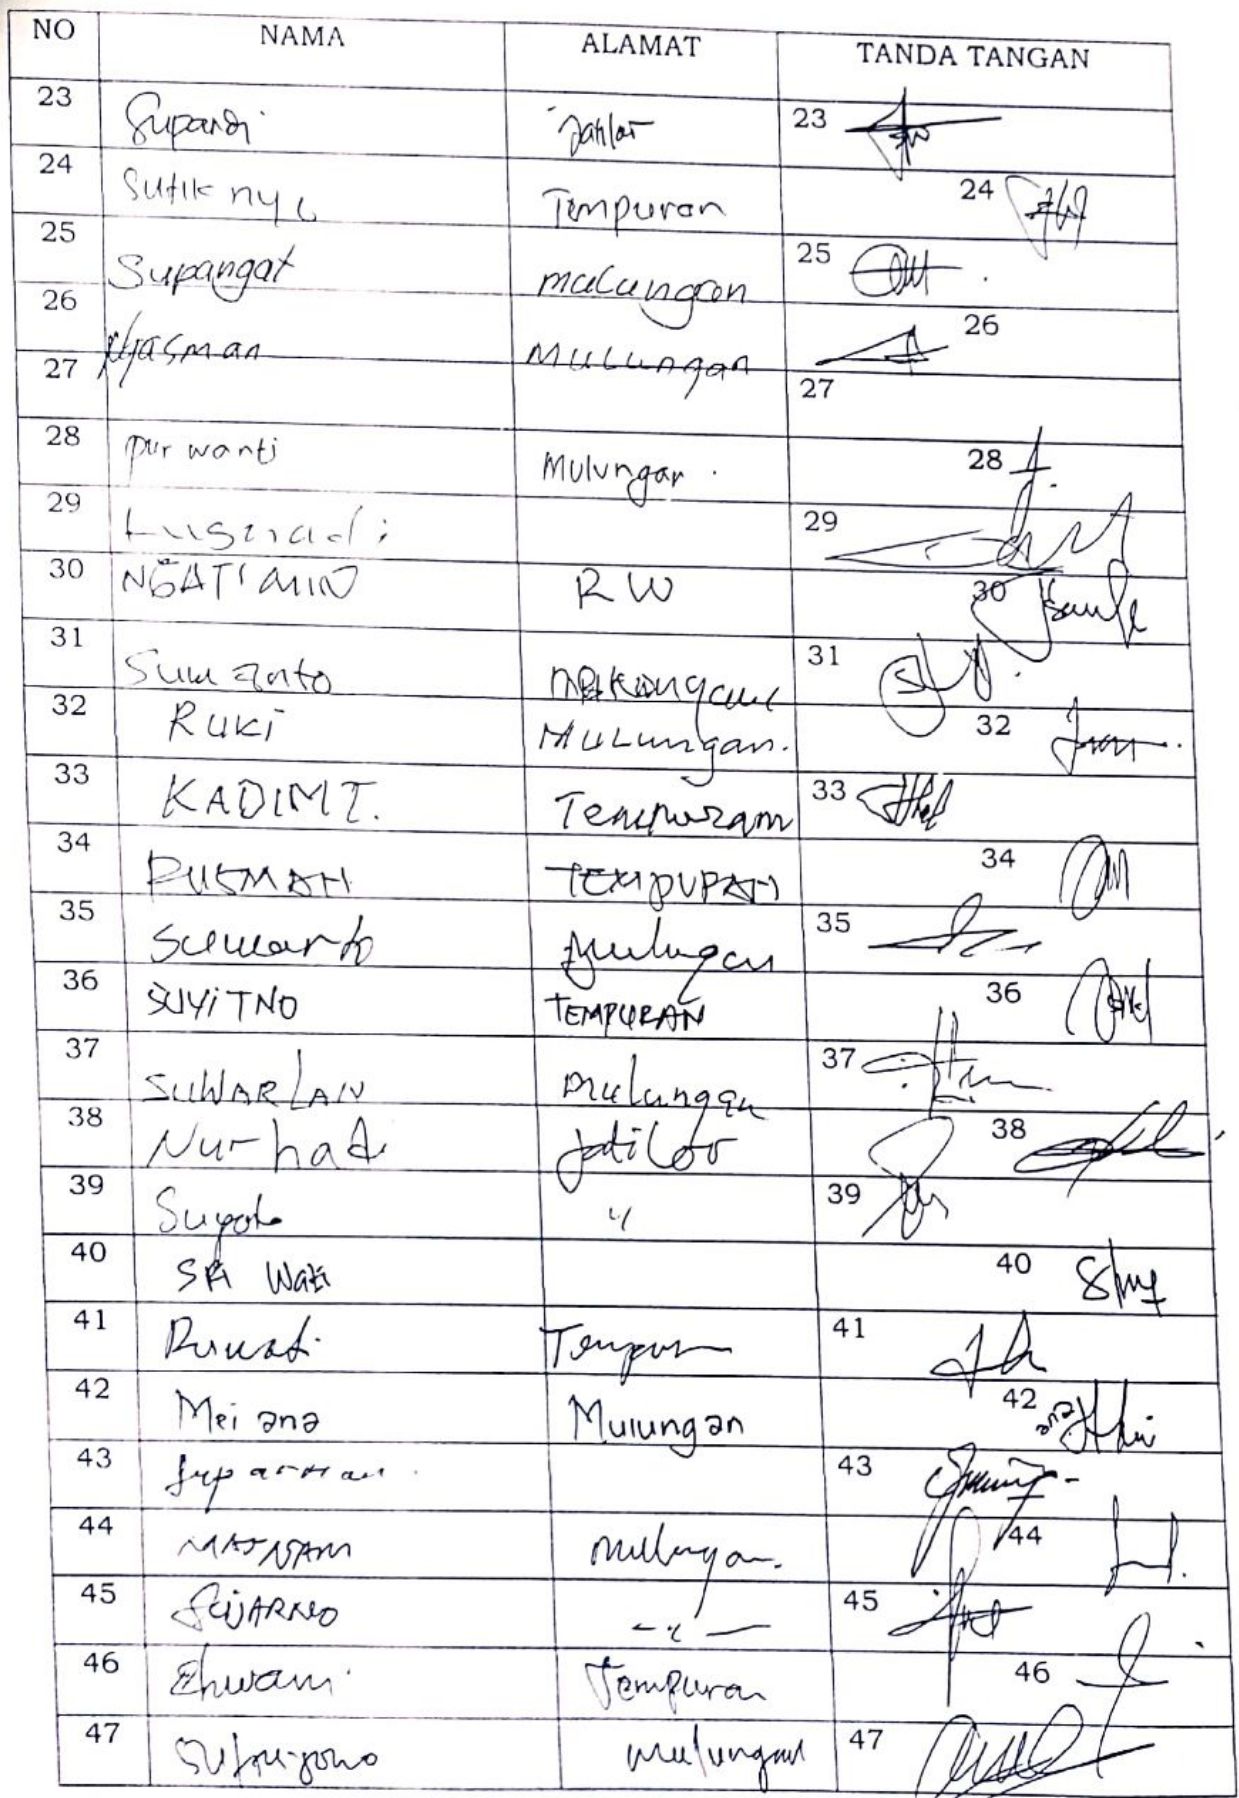 NO NAMA ALAMAT TANDA TANGAN
23 Supardi Jatilor 23
24 Sutik Tempuran 24
25 Supangat mulungan 25
26 Ngasman Mulungan 26
27 27
28 pur wanti Mulungan 28
29 29
30 NGATIMIN RW 30
31 Suwanto 31
32 RUKi MULungan. 32
33 KADIMT. Tempuram 33
34 RUSMAN TEMPURAN 34
35 Suwarto Mulungan 35
36 SUYiTNO TEMPURAN 36
37 SUWARLAN mulungan 37
38 Nurhadi Jatilor 38
39 Suyoto " 39
40 SRi Wati 40
41 Ruwati Tempuran 41
42 Mei ana Mulungan 42
43 Suparman 43
44 Mulungan. 44
45 SUJARNO - " - 45
46 Tempuran 46
47 mulungan 47